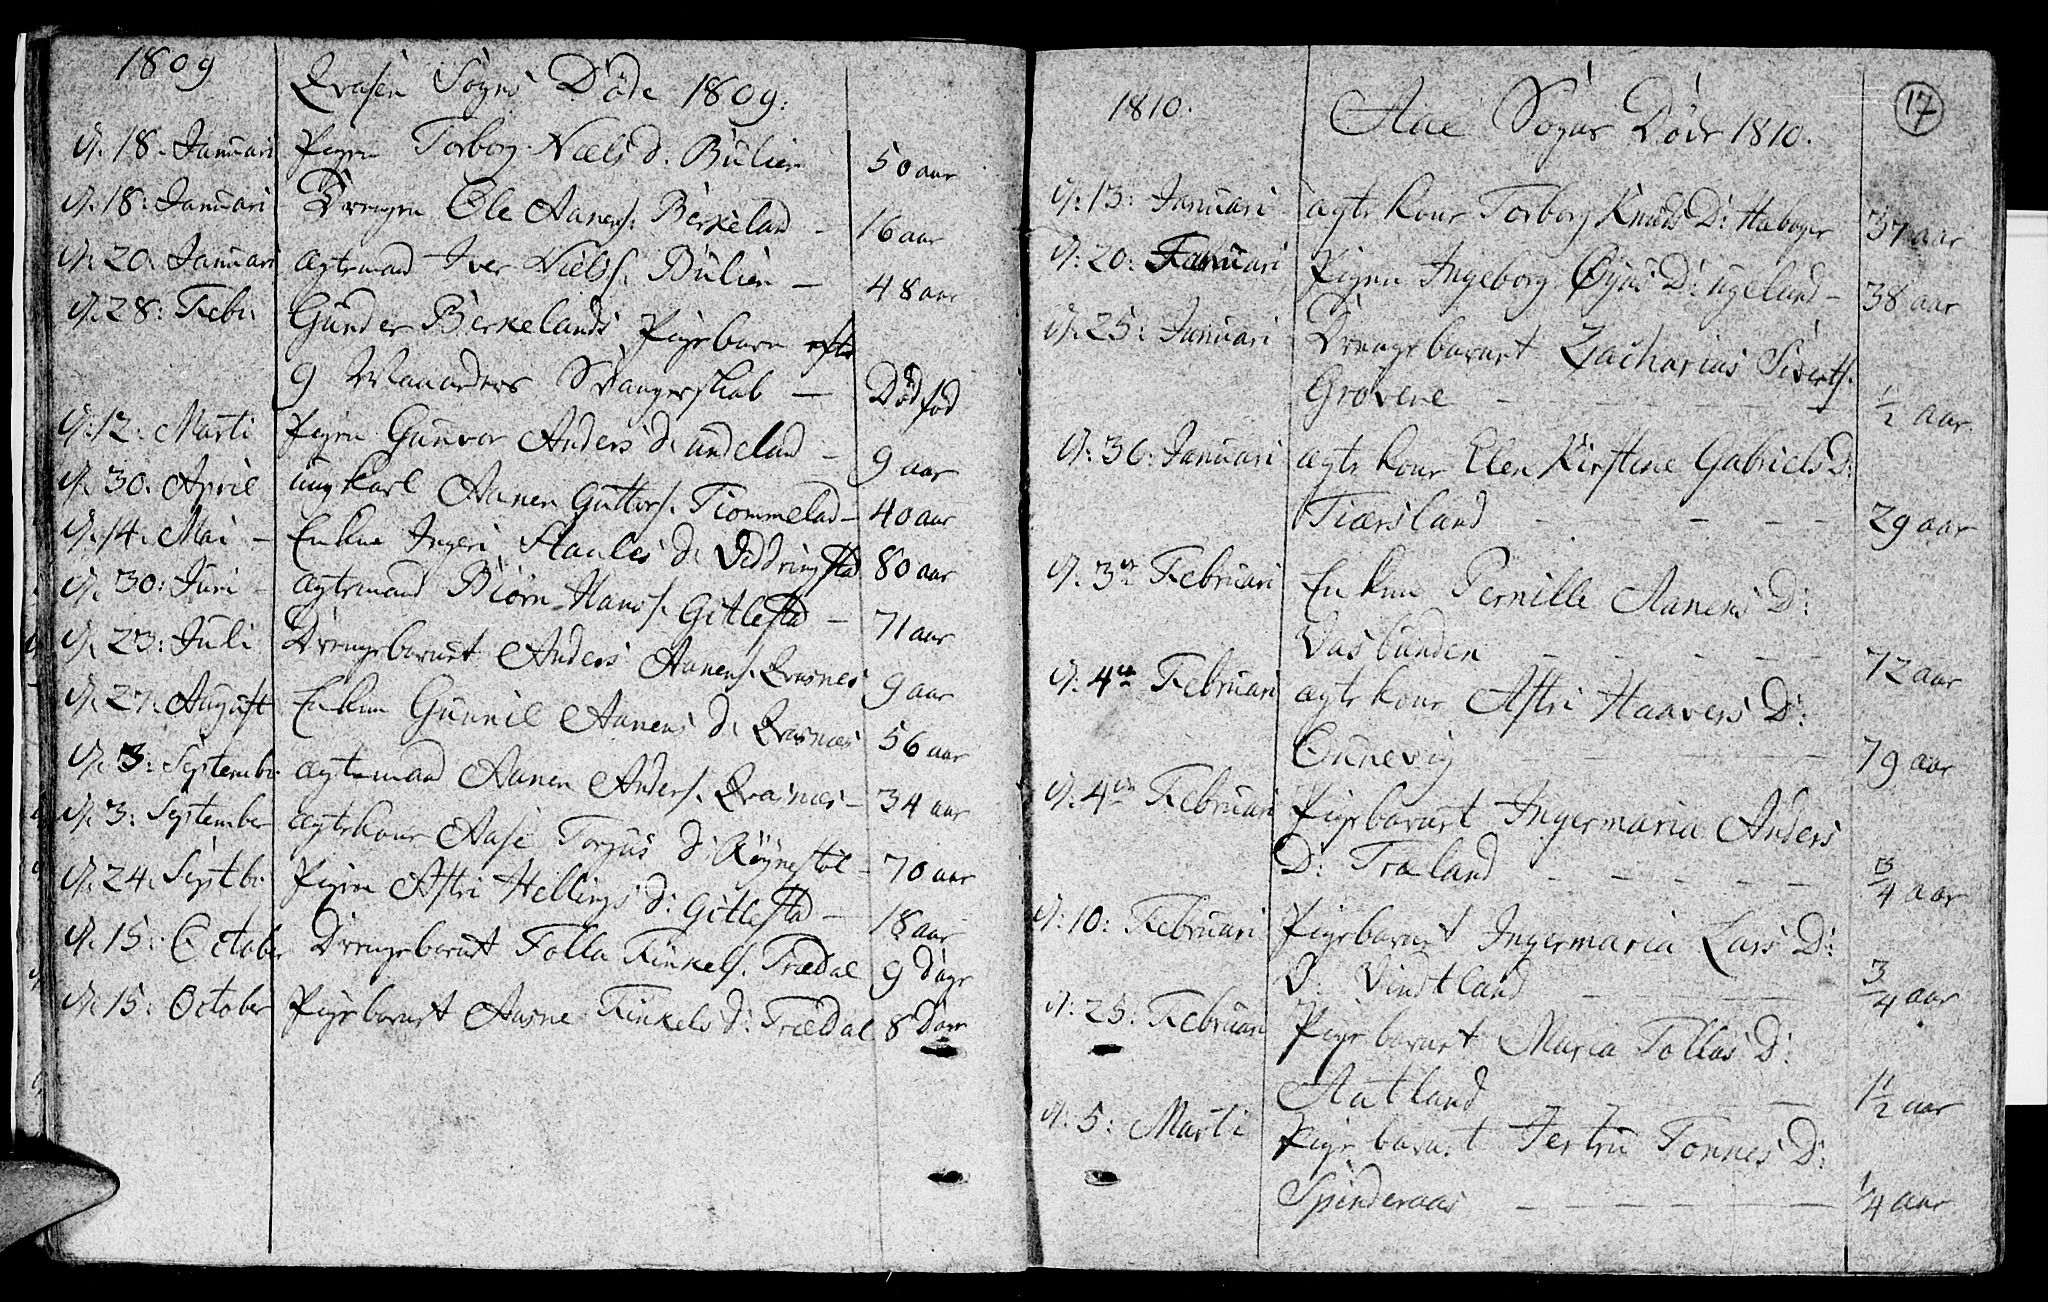 1809
Qvasen Sogns Døde 1809.
d. 18. Januari Pigen Torborg Niels d. Bulien 50 aar
d. 18: Januari Drengen Ole Aanens. Berkeland – 16 aar
d. 20. Januari ægtemand Iver Niels s. Bulien – 48 aar
d. 28: Febr: Gunder Berkelands Pigebarn efter
9 Maaneders Svangerskab – Død fød
d: 12: Marti Pigen Gunvor Anders d. andeland – 9 aar
d. 30. April ungkarl Aanen Guttors. Tiommelad – 40 aar
d. 14. Mai – Enkue Ingeri Staales d. Veddringstad 80 aar
d. 30: Juni – ægtemand Biørn Hans s. Gitlestad – 71 aar
d. 23: Juli Drengebarnet Anders Aanens. Qvasnes 9 aar
d. 27. August Enkue Gunnil Aanens d. Qvasnes 56 aar
d. 3: Septembr. ægtemand Aanen Anders. Qvasnes – 34 aar
d. 3: September ægtekone Aase Torjus d: Røynestøl – 70 aar
d. 24. Septbr. Pigen Astri Hellings d: Gitlestad – 18 aar
d. 15: October Drengebarnet Tolla Finkels. Trædal 9 Dage
d. 15: October Pigebarnet Aasne Finkels d: Trædal 8 Dage
17
1810. Aae Sogns Døde 1810.
d: 13: Januari ægtekone Torborg Knuds D: Haboger 37 aar
d: 20: Januari Pigen Ingeborg Øyus D: ugeland – 38 aar
d: 25: Januari Drengebarnet Zacharias Siverts.
Grovene – – – – – 1/2 aar.
d: 30: Januari ægtekone Elen Kirstine Gabriels D:
Tiærsland – – – – – 29 aar
d: 3de Februari Enkue Pernille Aanens D:
Vasbunden – – – – – 72 aar
d: 4de Februari ægtekone Astri Haavers D:
Ounevig – – – – – 79 aar
d: 4de Februari Pigebarnet Ingermaria Anders
D: Træland – – – – – 3/4 aar
d: 10: Februari Pigebarnet Ingermaria Lars D:
V. Vindtland – – – – 3/4 aar
d: 25: Februari Pigebarnet Maria Tollas D:
Aatland – – – – 1 1/2 aar
d: 5: Marti Pigebarnet Jertru Tonnes D:
Spinderaas – – – – – 1/4 aar